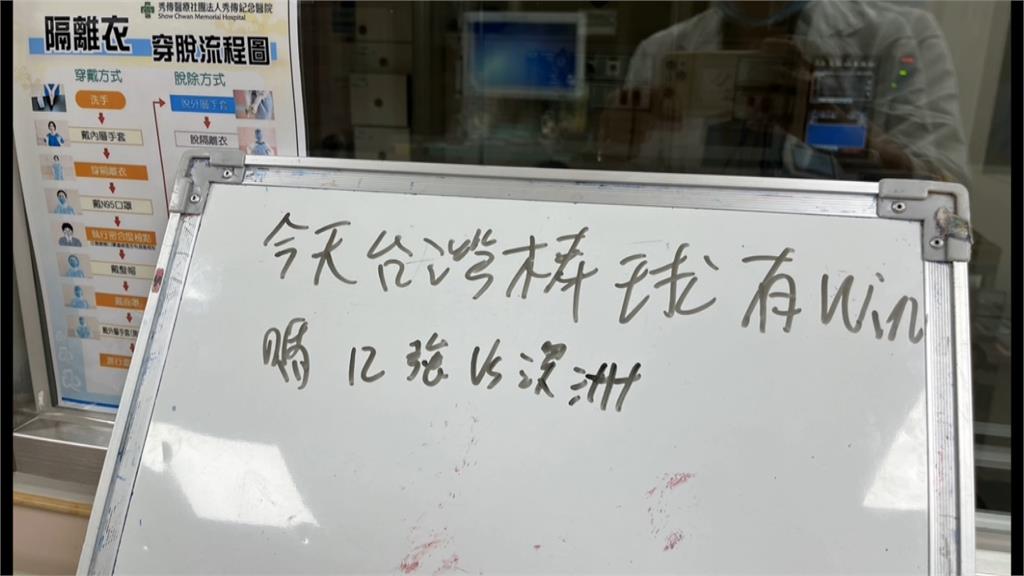 秀傳醫療社團法人秀傳紀念醫院
Show Chwan Memorial Hospital
隔離衣 穿脫流程圖
穿戴方式
洗手
戴內層手套
穿隔離衣
戴N95口罩
執行密合度檢點
戴髮帽
戴面罩
戴外層手套
脫除方式
脫外層手套
脫隔離衣
今天台灣棒球有Win
嗎 12強 VS 澳洲